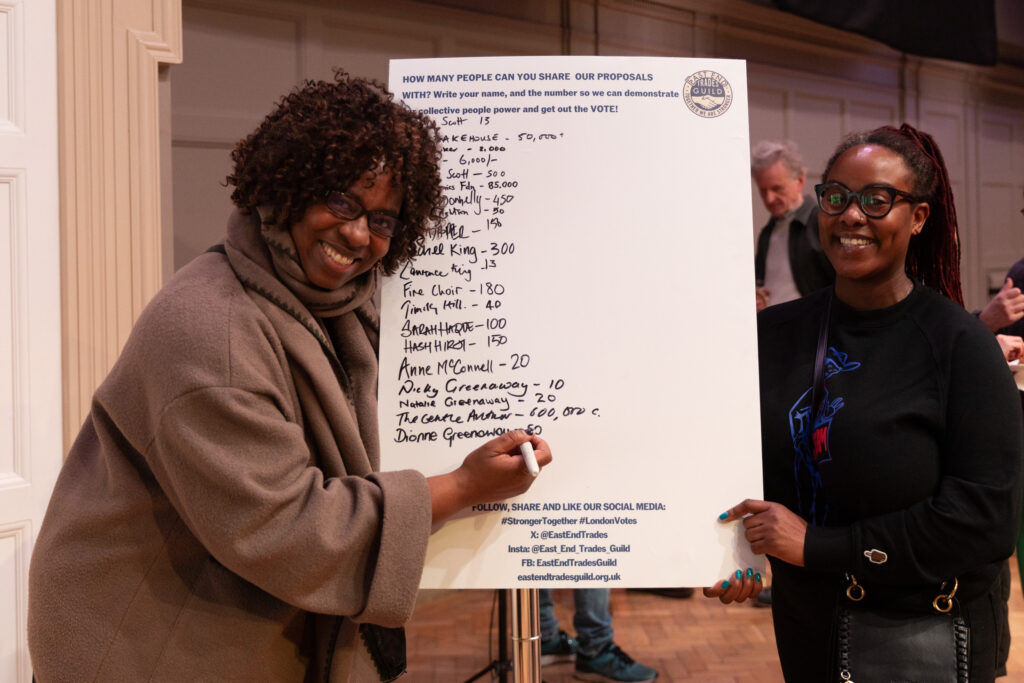 HOW MANY PEOPLE CAN YOU SHARE OUR PROPOSALS
WITH? Write your name, and the number so we can demonstrate
collective people power and get out the VOTE!
EAST END
TRADES
GUILD
TOGETHER WE ARE STRONGER
Scott 13
AKEHOUSE - 50,000+
- 2,000
- 6,000/-
Scott - 500
- 85,000
- 450
- 50
- 150
King - 300
Laurence King 13
Fire Choir - 180
Timothy Hill. - 40
SARAH HAQUE - 100
- 150
Anne McConnell - 20
Nicky Greenaway - 10
Natalie Greenaway - 20
The Gentle Author - 600,000 c.
Dionne Greenaway - 50
FOLLOW, SHARE AND LIKE OUR SOCIAL MEDIA:
#StrongerTogether #LondonVotes
X: @EastEndTrades
Insta: @East_End_Trades_Guild
FB: EastEndTradesGuild
eastendtradesguild.org.uk